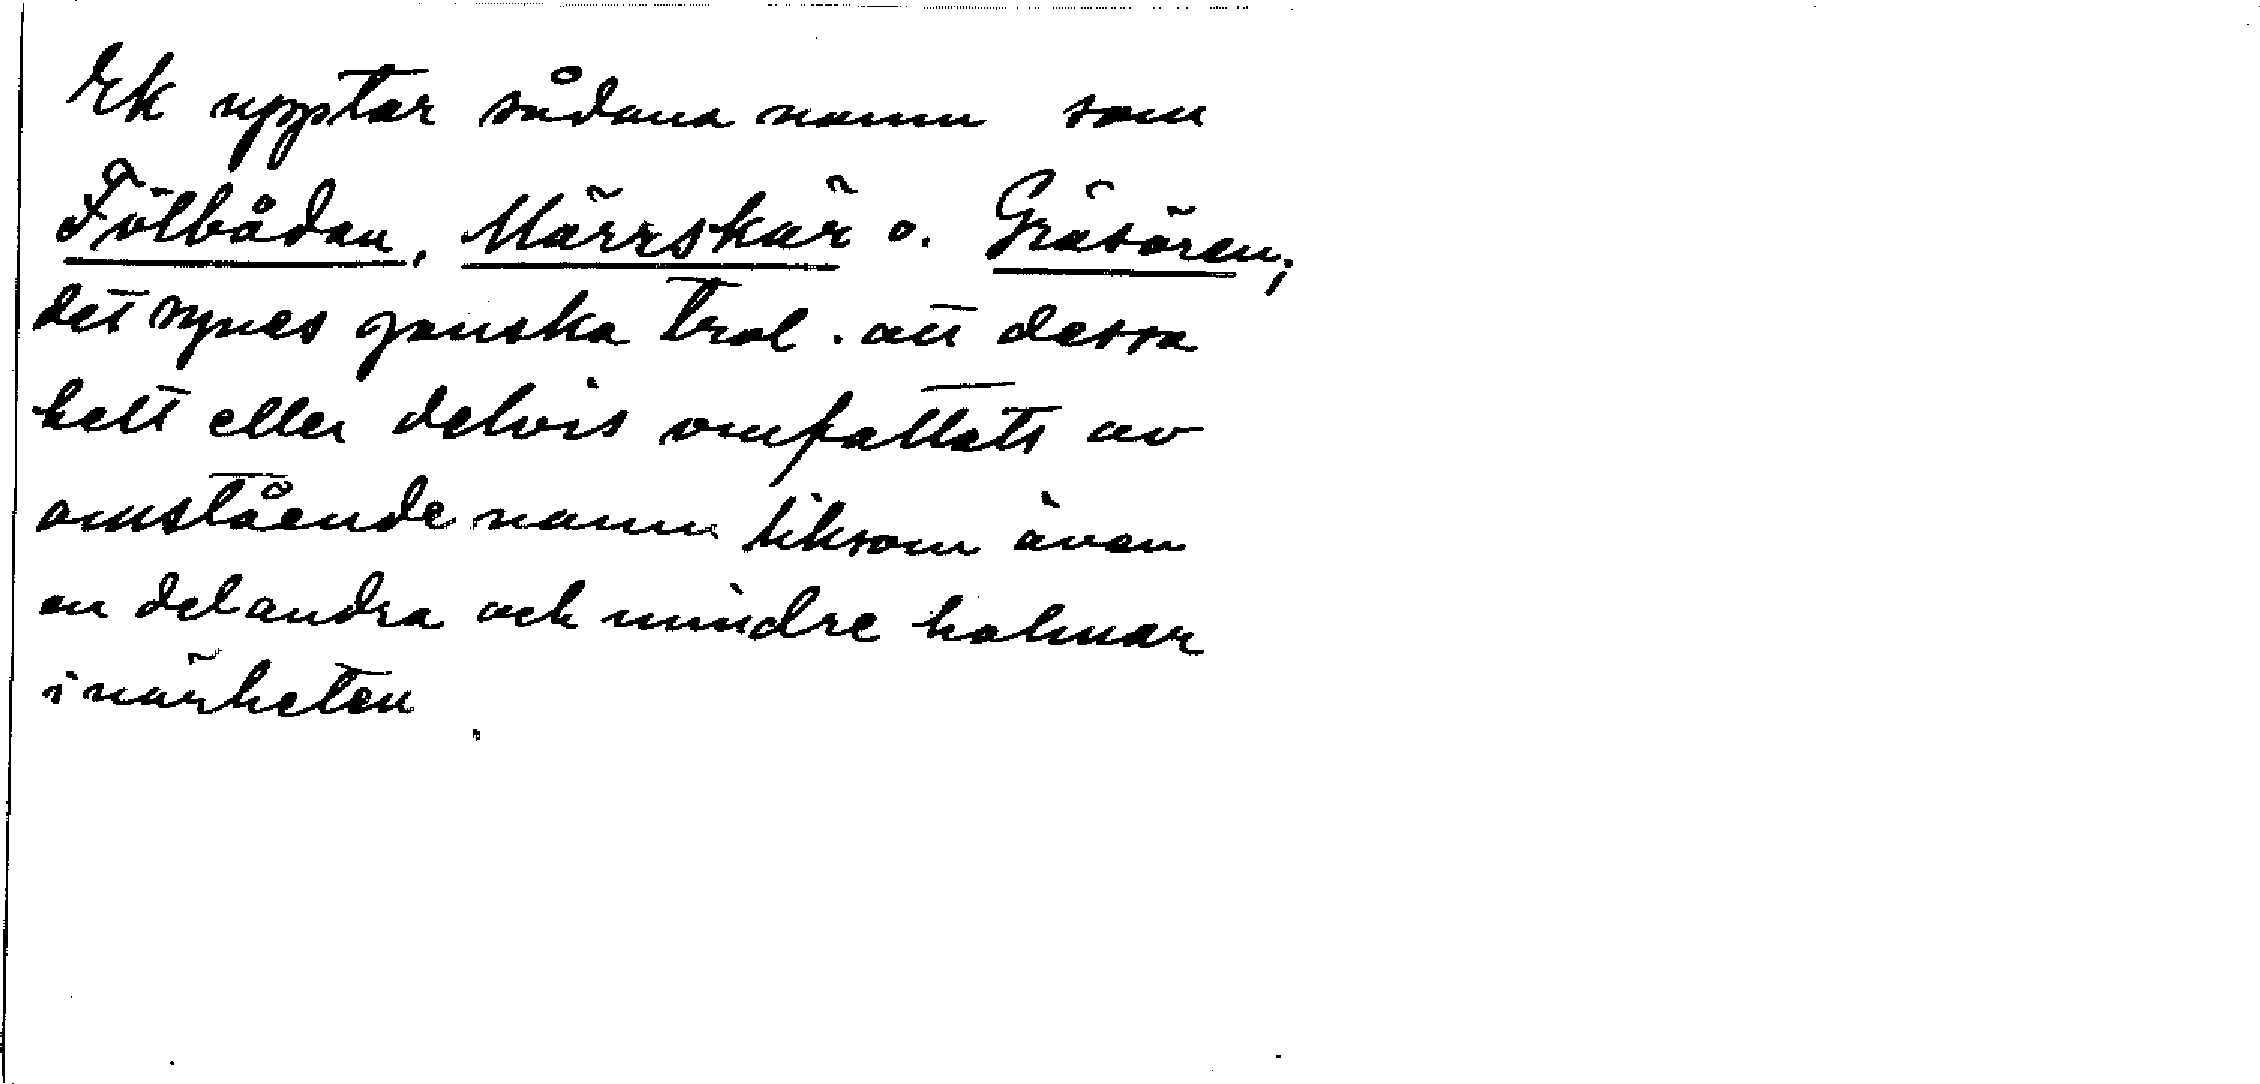 Ek upptar sådana namn som
Fölbådan, Märrskär o. Gräsören;
det synes ganska trol. att dessa
helt eller delvis omfattats av
omstående namn liksom även
en del andra och mindre holmar
i närheten.